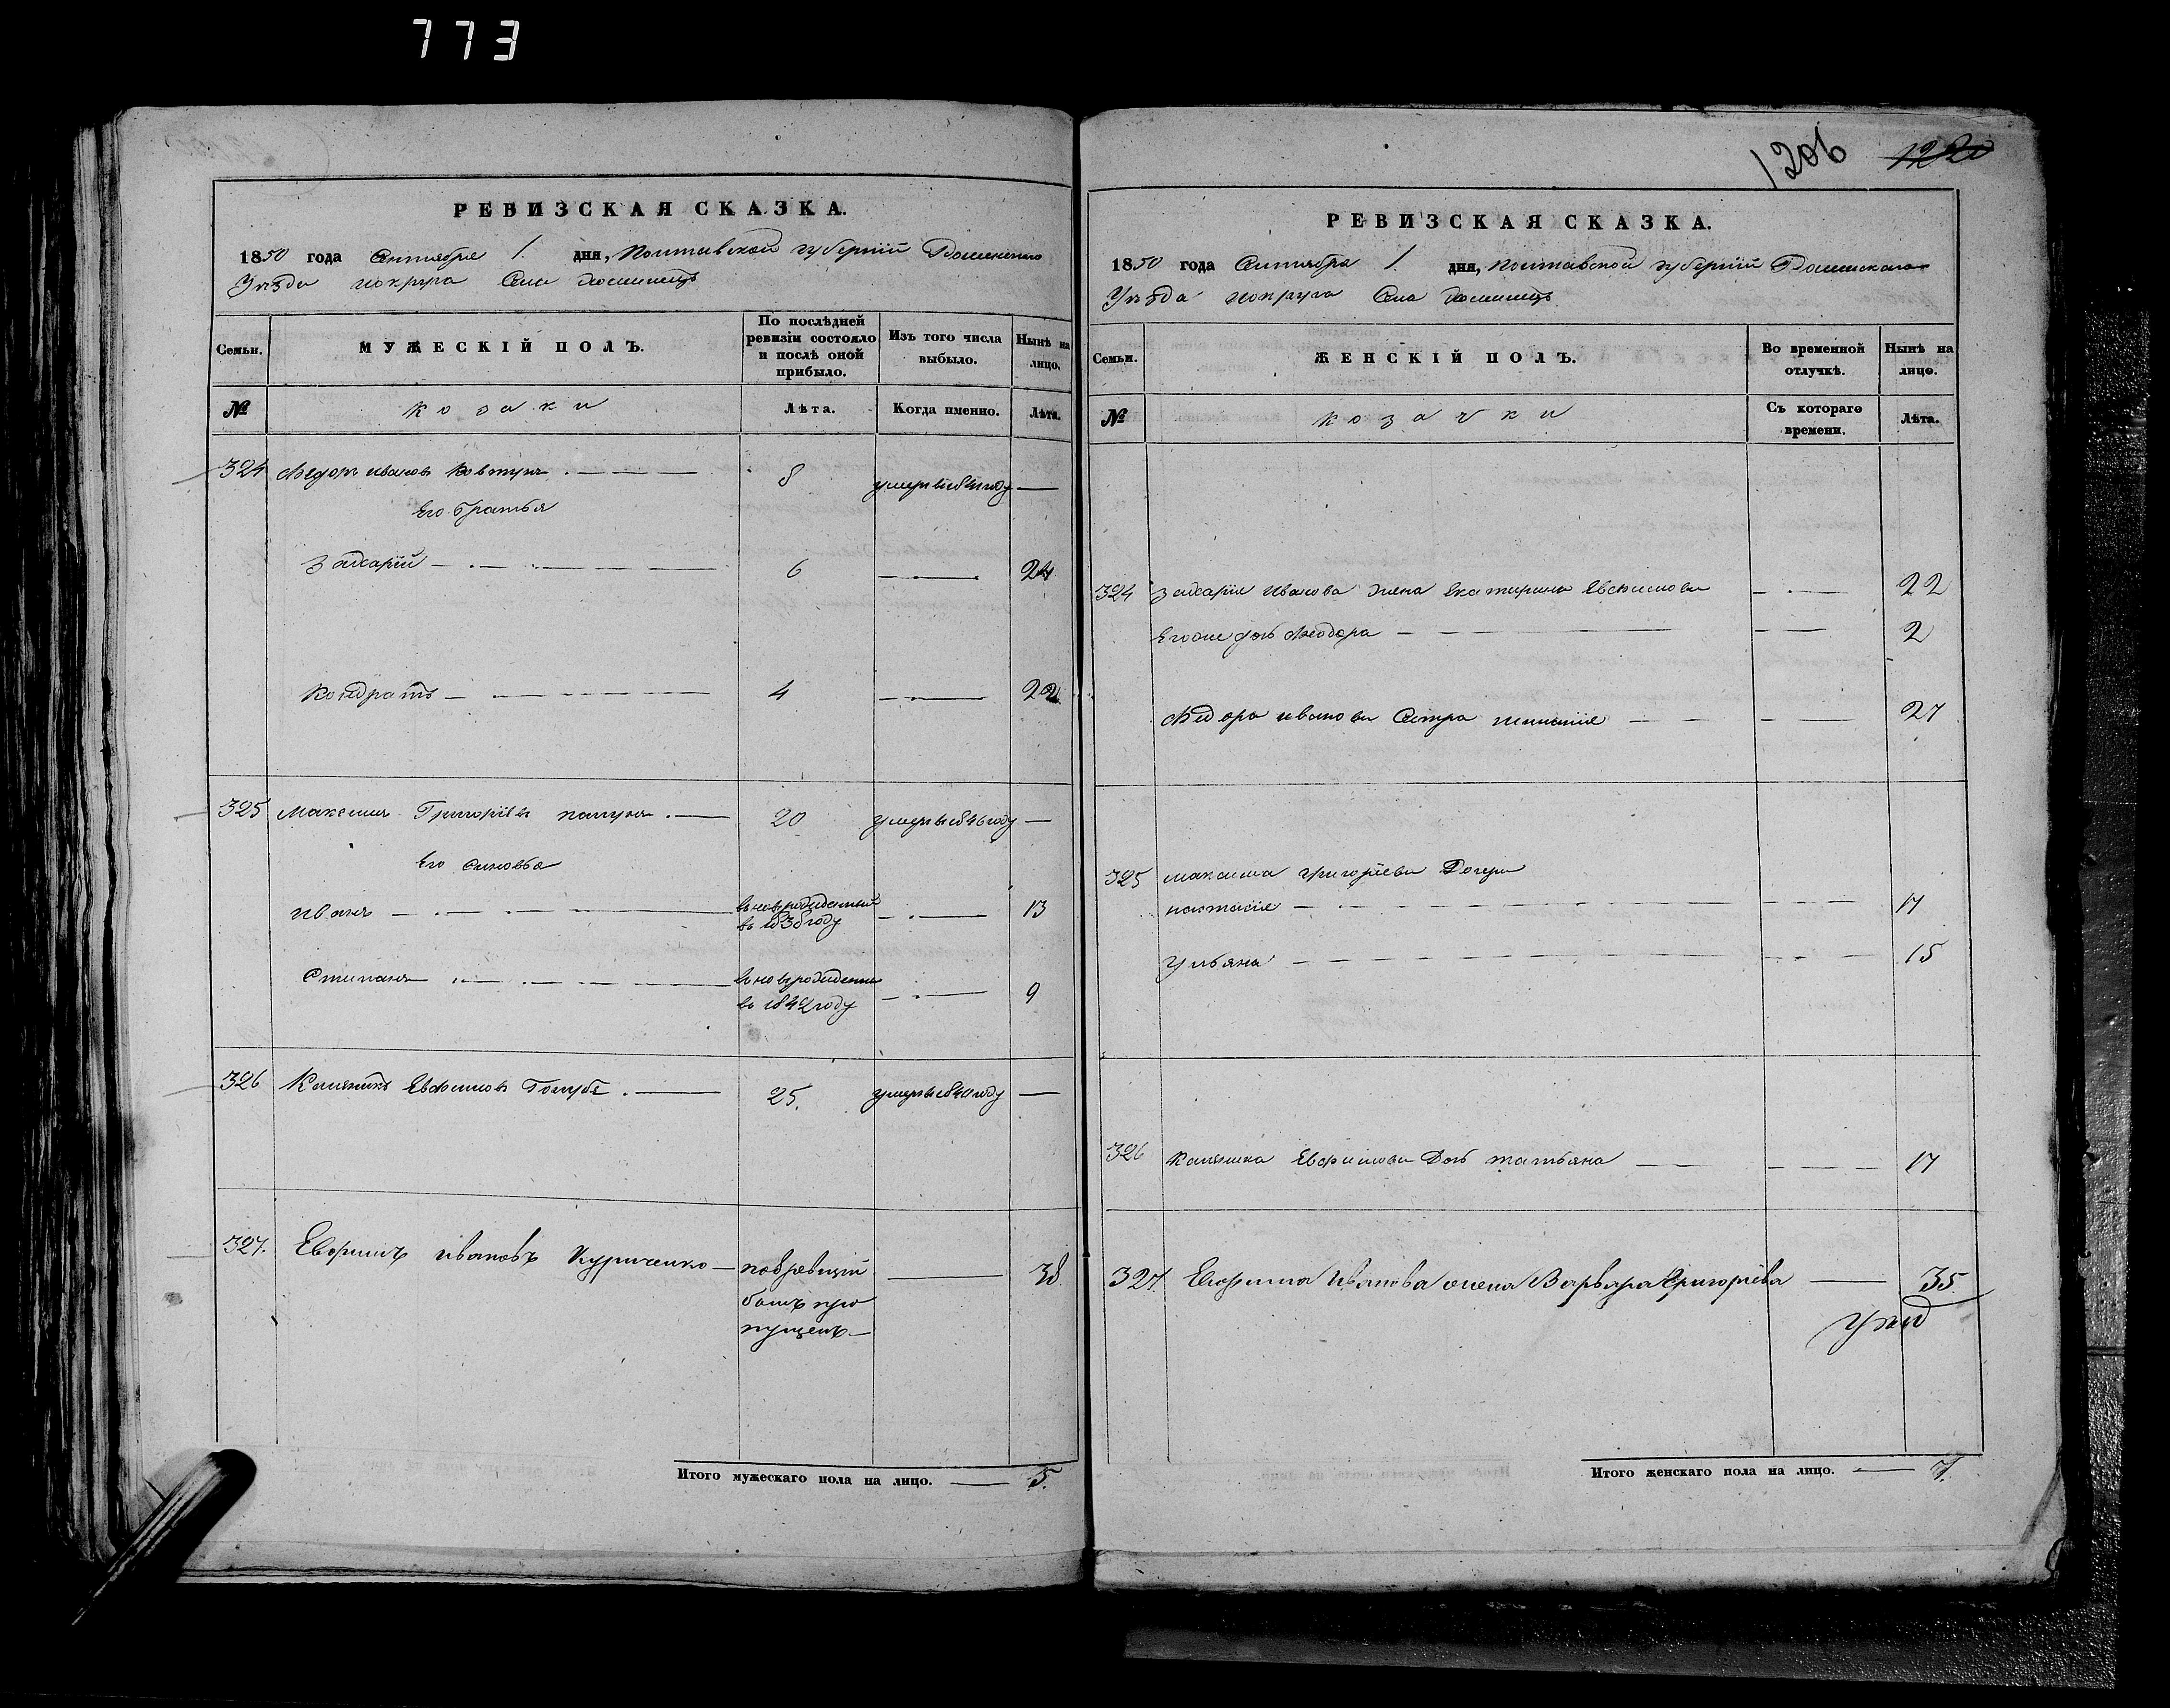 773
РЕВИЗСКАЯ СКАЗКА.
1850 года Сентября 1. дня, Полтавской губерніи Роменского
Уѣзда иокруга Села
Семьи.
МУЖЕСКІЙ ПОЛЪ.
По послѣдней ревизіи состояло и послѣ оной прибыло.
Изъ того числа выбыло.
Нынѣ на лицо.
№
козаки
Лѣта.
Когда именно.
Лѣта.
324 Ѳедоръ ивановъ Ковтунъ 8 умеръ в1841году
Его братья
Захарій 6 24
Кондратъ 4 22
325 Максимъ Григоріевъ 20 умеръ в1846году
Его синовья
иванъ 13
въ 1838 году
Степанъ 9
въ 1842 году
326 Евфимовъ Голубъ 25. умеръ в1840году
327. Евфимъ ивановъ Куриченко повревизіи 38.
болъ про
пущенъ
Итого мужескаго пола на лицо. 5.
1206 1220
РЕВИЗСКАЯ СКАЗКА.
1850 года Сентября 1. дня, полтавской губерніи Роменскаго
Уѣзда иокруга Села
Семьи.
ЖЕНСКІЙ ПОЛЪ.
Во временной отлучкѣ.
Нынѣ на лицо.
№
козачки
Съ котораго времени.
Лѣта.
324 захарія Иванова жена екатерина Евфимова 22
Егоже дочь Ѳеодора 2
Ѳедора иванова Сестра 27
325 максима григоріева Дочери
настасія 17
Ульяна 15
326 Евфимова Дочь татьяна 17
327. Евфима Иванова жена Варвара Григоріева 35.
Итого женскаго пола на лицо. 7.